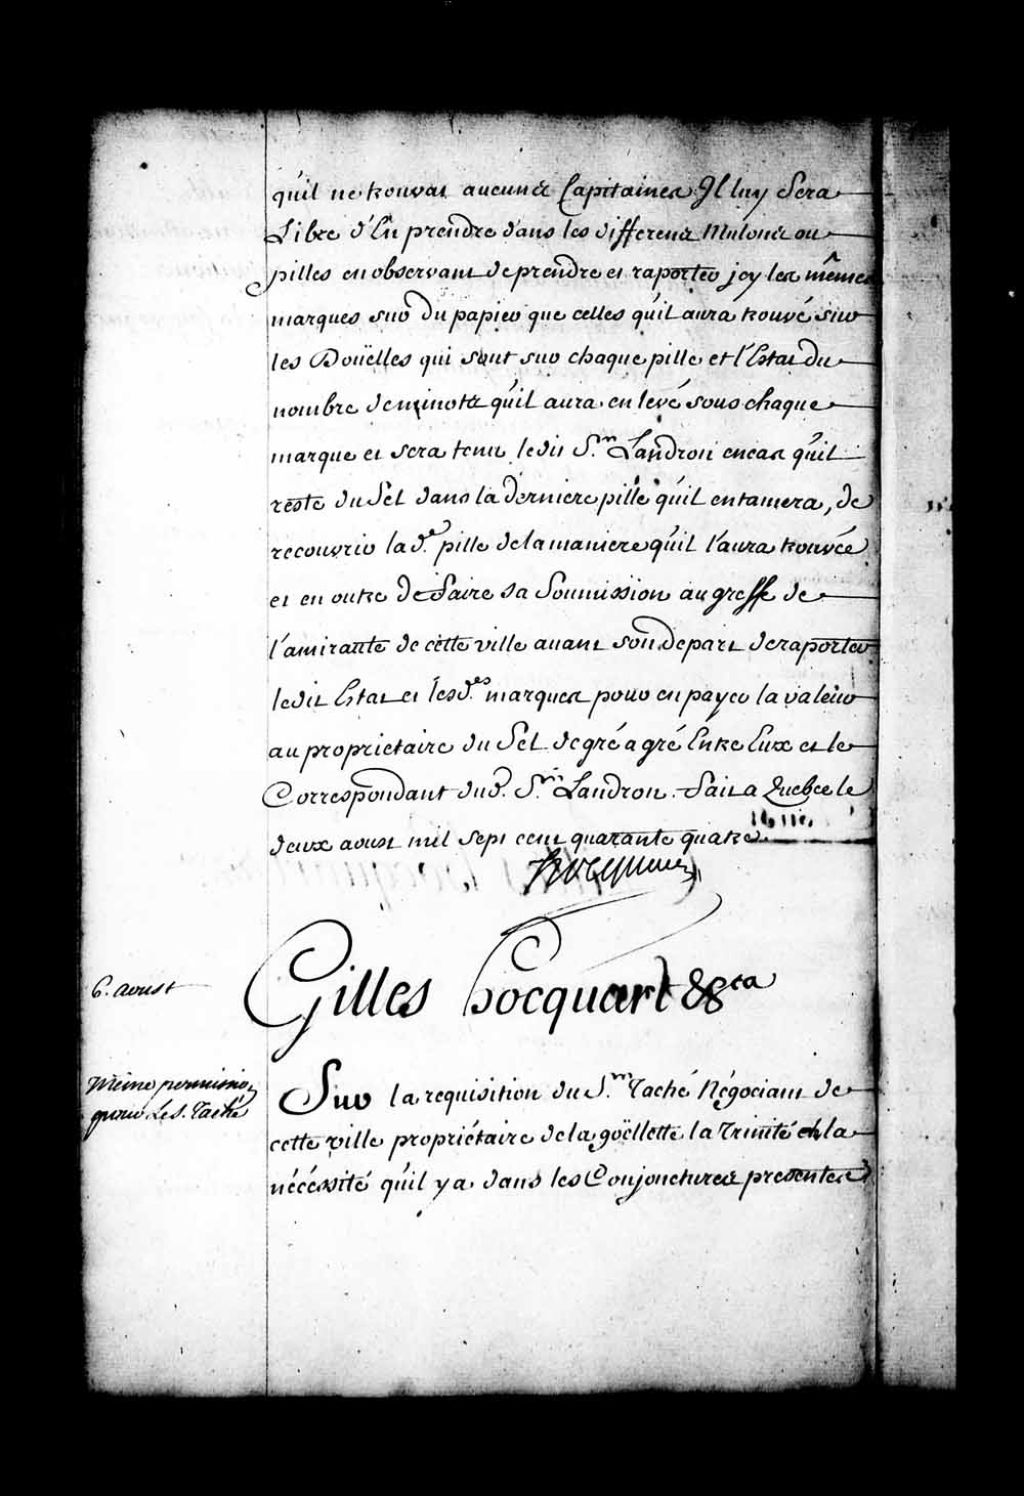 qu'il ne trouvat aucuns Capitaines Il luy Sera
Libre d'En prendre dans les differens Mulons ou
pilles en observant de prendre et raporter icy les mêmes
marques sur du papier que celles qu'il aura trouvé sur
les Doüelles qui sont sur chaque pille et l'Estat du
nombre de minots qu'il aura enlevé sous chaque
marque et sera tenu ledit Sr. Landron encas qu'il
reste du Sel dans la derniere pille qu'il entamera, de
recouvrir lad.e pille de la maniere qu'il l'aura trouvée
et en outre de faire sa Soumission au greffe de
l'amirauté de cette ville avant son depart de raporter
ledit Estat et lesd.es marques pour en payer la valeur
au proprietaire du Sel de gré a gré Entre Eux et le
Correspondant dud. Sr. Landron. Fait a Quebec le
deux aoust mil sept cent quarante quatre
Hocquart
6. aoust
Gilles Hocquart &cta
Meme permission
pour Le S. Taché
Sur la requisition du Sr. Taché Négociant de
cette ville propriétaire de la goëllette la Trinité et la
nécéssité qu'il y a dans les Conjonctures presentes